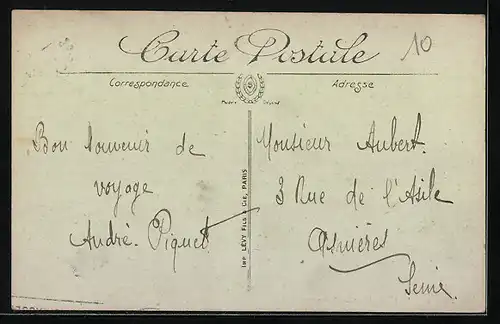 Carte Postale
10
Correspondance
Adresse
Bon souvenir de
voyage
André. Piquet
IMP. LÉVY FILS & CIE, PARIS
Monsieur Aubert.
3 Rue de l'Asile
Asnières
Seine.